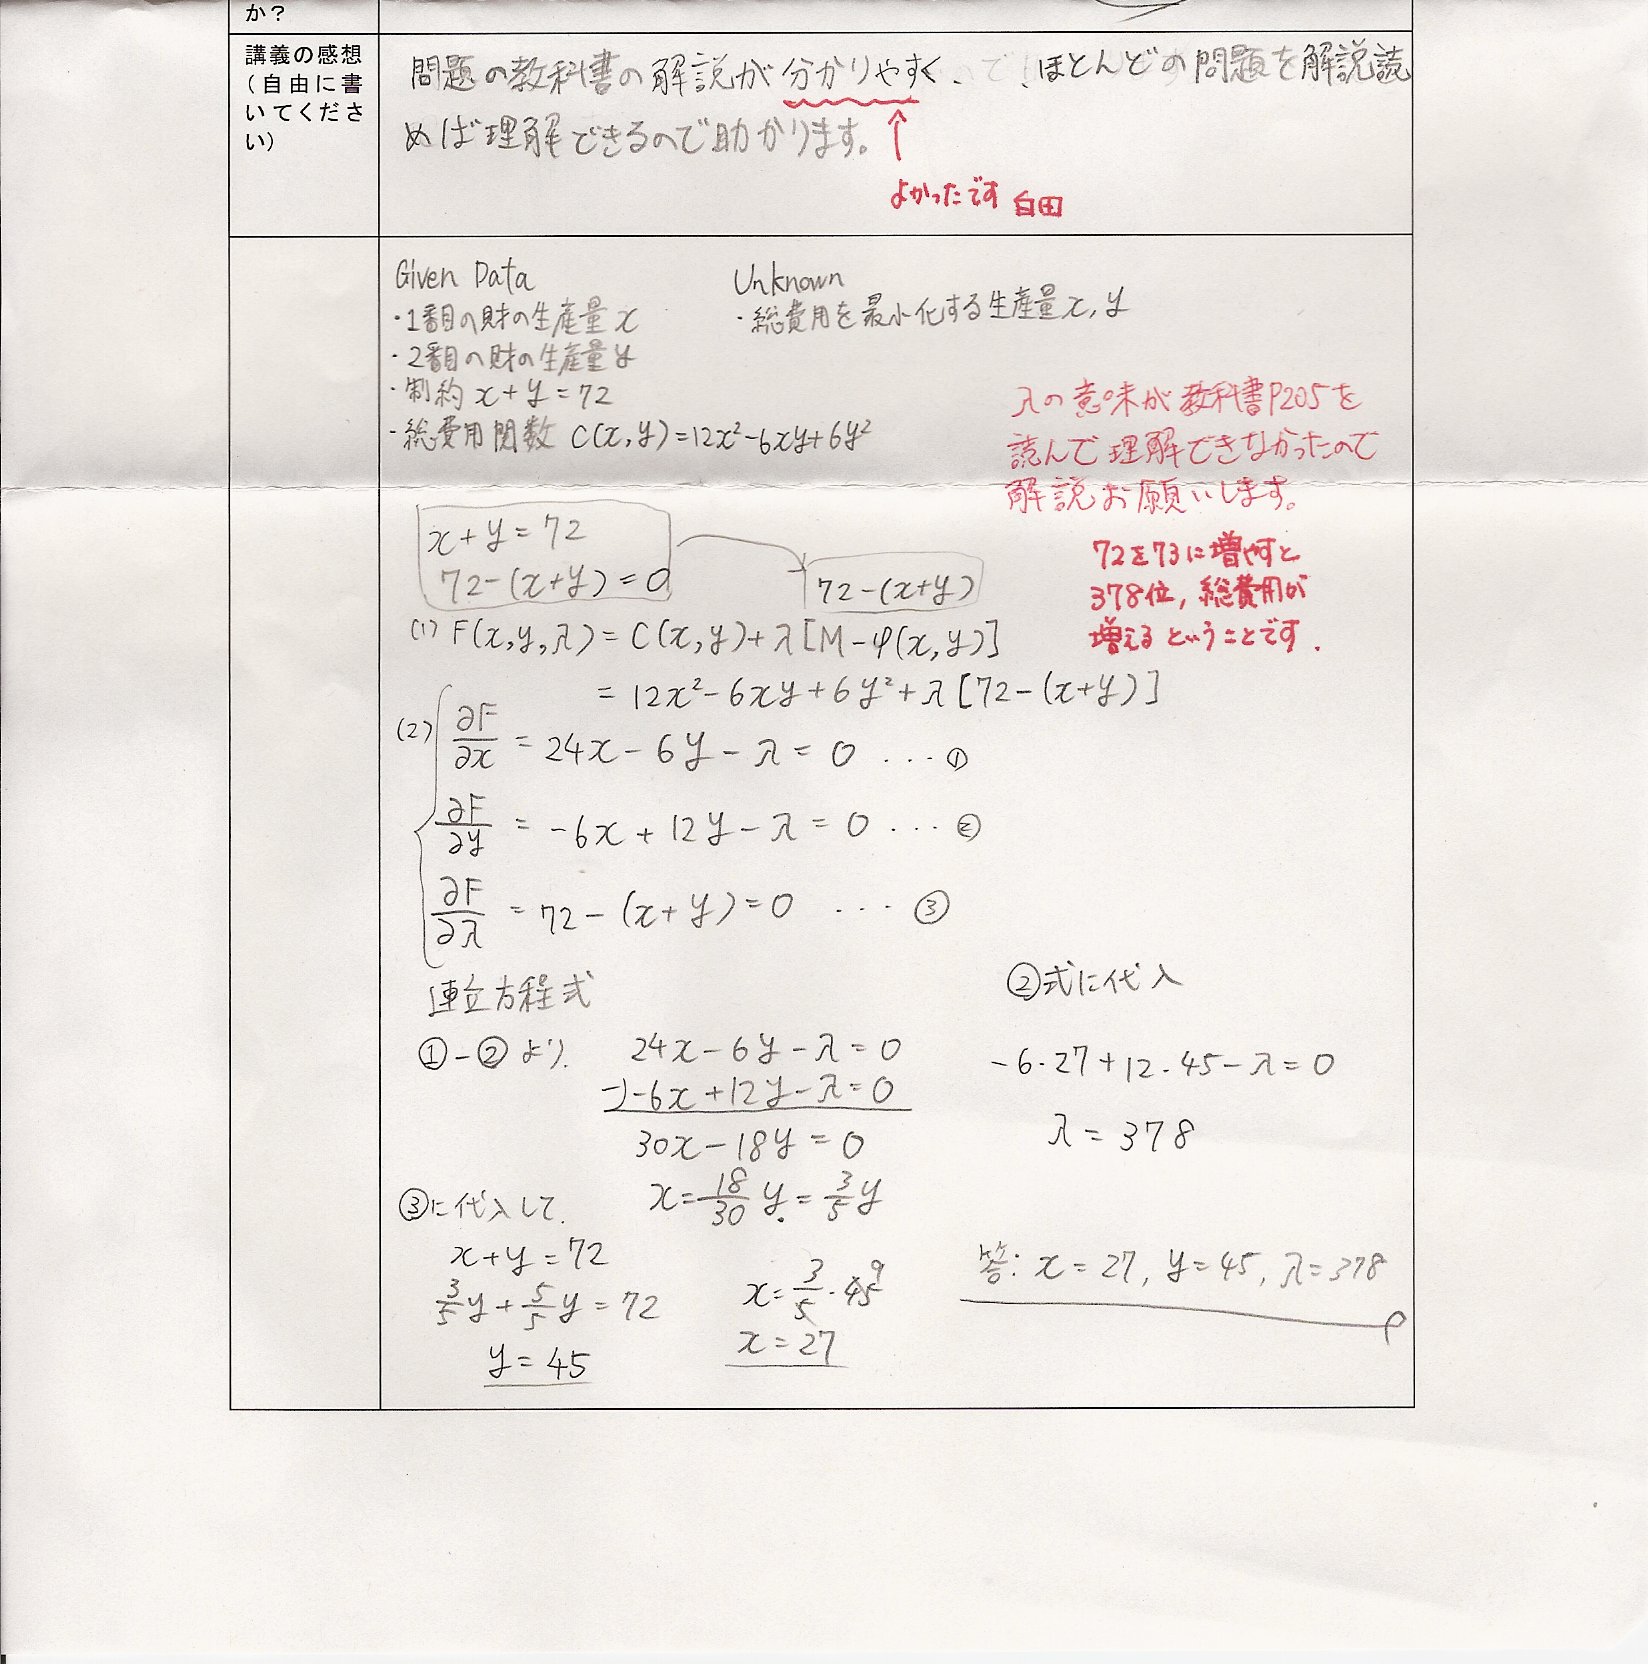 か？
講義の感想
（自由に書
いてくださ
い）
問題の教科書の解説が分かりやすく、で！ほとんどの問題を解説読
めば理解できるので助かります。
よかったです 白田
Given Data
・1番目の財の生産量x
・2番目の財の生産量y
・制約 x+y=72
・総費用関数 C(x,y)=12x²-6xy+6y²
Unknown
・総費用を最小化する生産量x,y
λの意味が教科書P205を
読んで理解できなかったので
解説お願いします。
72を73に増やすと
378位，総費用が
増えるということです．
x+y=72
72-(x+y)=0
72-(x+y)
(1) F(x,y,λ)=C(x,y)+λ[M-φ(x,y)]
=12x²-6xy+6y²+λ[72-(x+y)]
(2) ∂F/∂x = 24x-6y-λ=0 … ①
∂F/∂y = -6x+12y-λ=0 … ②
∂F/∂λ = 72-(x+y)=0 … ③
連立方程式
①-②より
24x-6y-λ=0
-)-6x+12y-λ=0
30x-18y=0
x=18/30 y=3/5 y
③に代入して
x+y=72
3/5 y+5/5 y=72
y=45
x=3/5・45 9
x=27
②式に代入
-6・27+12・45-λ=0
λ=378
答: x=27, y=45, λ=378